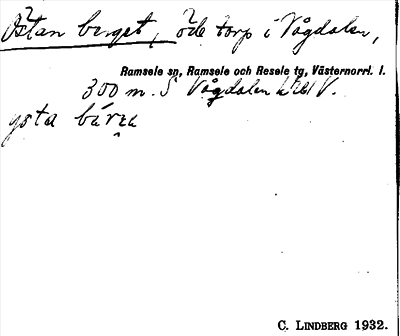 Östan berget, öde torp i Vågdalen,
Ramsele sn, Ramsele och Resele tg, Västernorrl. l.
300 m. S Vågdalen
ysta
C. LINDBERG 1932.